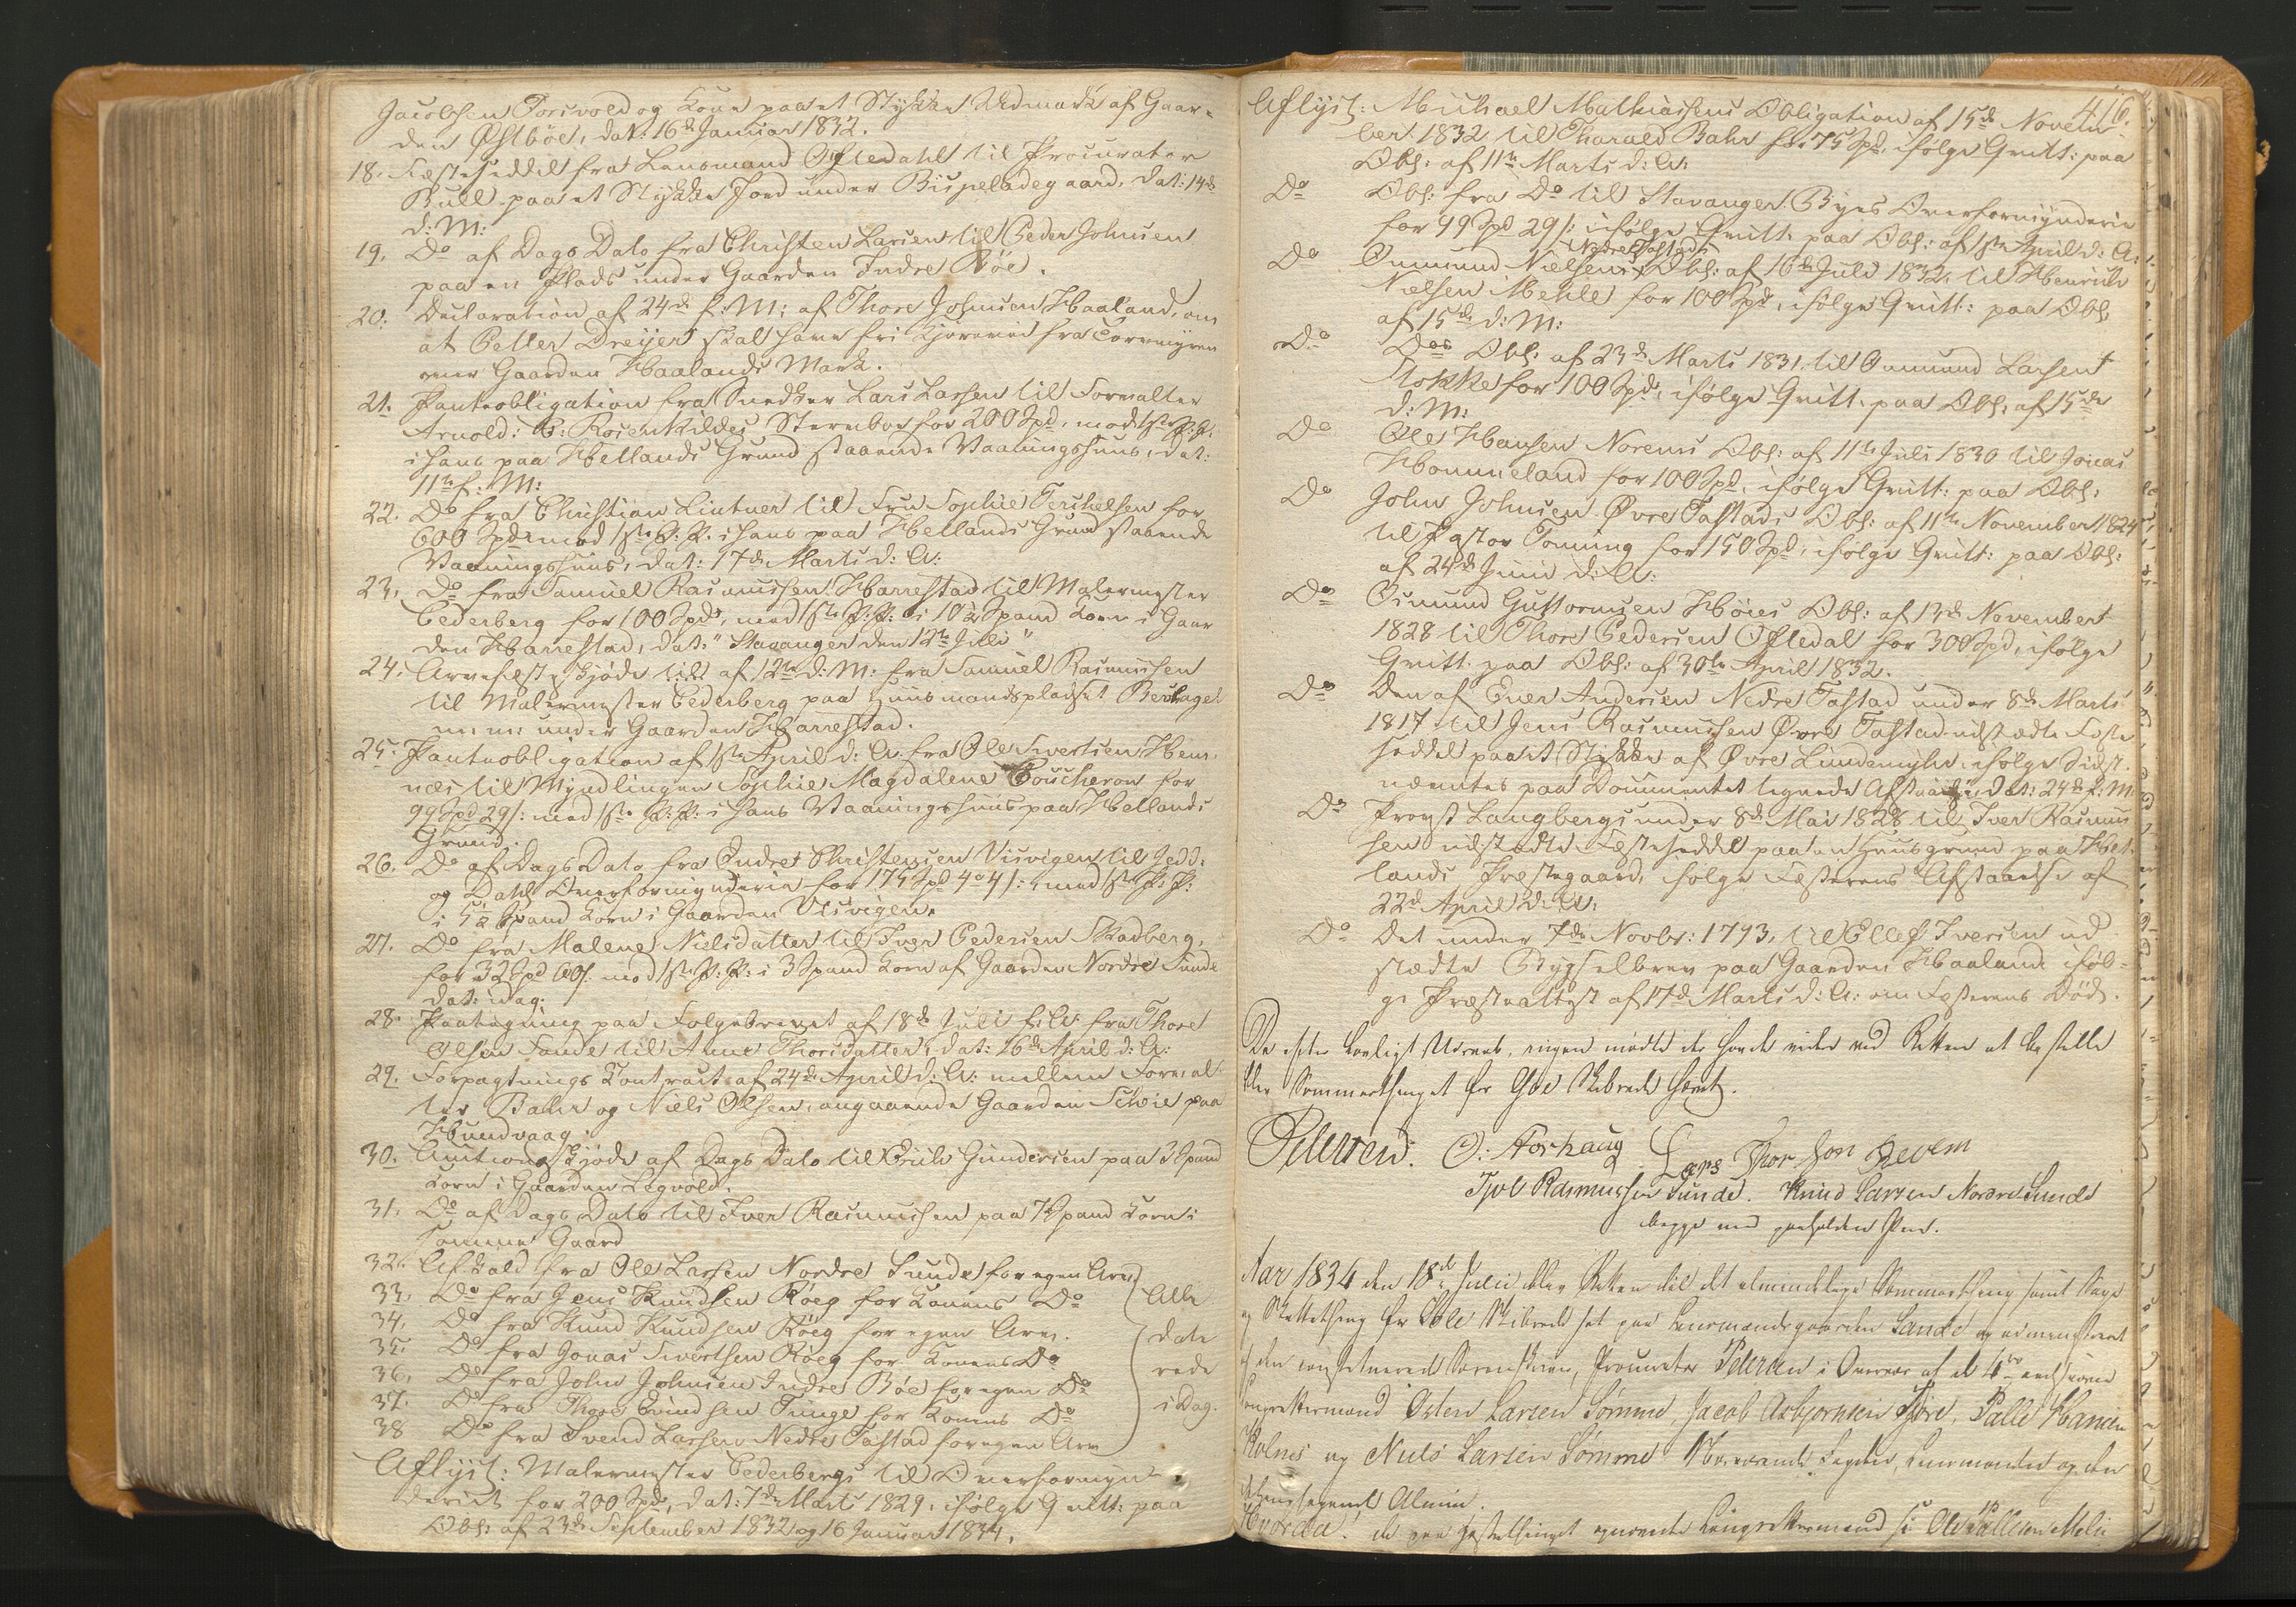 Jacobsen Forsvold og Kone paa et Stykke Udmark af Gaar-
den Østbøe, dat: 16de Januar 1832.
18. Fæsteseddel fra Lensmand Oftedahl til Procurator
Bull paa et Stykke Jord under Bispeladegaard, dat: 14de
d: M:
19. Do af Dags Dato fra Christen Larsen til Peder Johnsen
paa en Plads under Gaarden Indre Bøe.
20. Declaration af 24de f: M: af Thore Johnsen Haaland, om
at Petter Dreyer skal have fri Kjørevei fra Torvmyren
over Gaarden Haalands Mark.
21. Panteobligation fra Snedker Lars Larsen til Forvalter
Arnold: B: Rosenkildes Stervboe for 200 Spd, mod 1ste P: P:
i hans paa Hetlands Grund staaende Vaaningshuus, dat:
11te f: M:
22. Do fra Christian Lintner til Fru Sophie Terchelsen for
600 Spdr mod 1ste P: P. i hans paa Hetlands Grund staaende
Vaaningshuus, dat: 17de Marts d: A:
23. Do fra Samuel Rasmussen Harrestad til Malermester
Cederberg for 100 Spdr, mod 1ste P: P: i 10½ Spand Korn i Gaar
den Harrestad, dat: "Stavanger den 12te Juli"
24. Arvefæsteskjøde af 12te d: M: fra Samuel Rasmussen
til Malermester Cederberg paa Huusmandspladset Berhaget
m: m: under Gaarden Harrestad.
25. Panteobligation af 1ste April d: A: fra Ole Sivertsen Hem-
næs til Myndlingen Sophie Magdalene Boucheron for
99 Spd 29 s: mod 1ste P: P: i hans Vaaningshuus paa Hetlands
Grund.
26. Do af Dags Dato fra Endre Christensen Visvigen til Jedd:
og Dahls Overformynderie for 175 Spd 4o 4 s: mod 1ste P: P:
i 5½ Spand Korn i Gaarden Visvigen.
27. Do fra Malene Nielsdatter til Iver Pedersen Skadberg,
for 32 Spd 60 s. mod 1ste P: P: i 3 Spand Korn af Gaarden Nordre Sunde
dat: idag.
28. Paategning paa Folgebrevet af 18de Juli f: A: fra Thore
Olsen Sande til Anne Thorsdatter, dat: 26de April d: A:
29. Forpagtnings Contract af 24de April d: A: mellem Forval
ter Bahr og Niels Olsen, angaaende Gaarden Scheie paa
Hundvaag.
30. Auctionsskjøde af Dags Dato til Erich Gundersen paa 3 Spand
Korn i Gaarden Legvold.
31. Do af Dags Dato til Iver Rasmussen paa 7 Spand Korn i
samme Gaard
32. Afkald fra Ole Larsen Nordre Sunde for egen Arv
33. Do fra Jens Knudsen Røeg for Konens Do } Alle
34. Do fra Knud Knudsen Røeg for egen Arv.
35. Do fra Jonas Sivertsen Røeg for Konens Do date
36. Do fra John Johnsen Indre Bøe for egen Do rede
37. Do fra Thore Evindsen Tunge for Konens Do i Dag.
38 Do fra Svend Larsen Nedre Tastad for egen Arv
Aflyst: Malermester Cederbergs til Overformyn-
deriet for 200 Spd, dat: 7de Marts 1829, ifølge Qvitt: paa
Obl: af 23de September 1832 og 16 Januar 1834.
416.
Aflyst: Michael Mathiassens Obligation af 15de Novem-
ber 1832 til Tharald Bahr for 75 Spd, ifølge Qvitt: paa
Obl: af 11te Marts d: A:
Do Obl: fra Do til Stavanger Byes Overformynderie
for 99 Spd 29 s: ifølge Qvitt: paa Obl: af 1ste April d: A:
Nedre Tastads
Do Onmund Nielsens Obl: af 16de Juli 1832, til Henrich
Nielsen Mehle for 100 Spd, ifølge Qvitt: paa Obl:
af 15de d: M:
Do Dos Obl: af 23de Marts 1831, til Onmund Larsen
Stokke for 100 Spd, ifølge Qvitt: paa Obl: af 15de
d: M:
Do Ole Hansen Norems Obl: af 11te Juli 1830 til Jonas
Hommeland for 100 Spd, ifølge Qvitt: paa Obl:
Do John Johnsen Øvre Tastads Obl: af 11te November 1824
til Pastor Tonning for 150 Spd, ifølge Qvitt: paa Obl:
af 24de Juni d: A:
Do Osmund Guttormsen Høies Obl: af 13de November
1828 til Thore Pedersen Oftedal for 300 Spd, ifølge
Qvitt: paa Obl: af 30te April 1832.
Do Den af Iver Andersen Nedre Tastad under 8de Marts
1817 til Jens Rasmussen Øvre Tastad udstædte Fæste
seddel paa et Stykke af Øvre Lindemyhr, ifølge Sidst-
nævntes paa Documentet tegnede Afstaaelse, dat: 24de f: M:
Do Provst Langbergs under 8de Mai 1828 til Iver Rasmus
sen udstædte Fæsteseddel paa en Huusgrund paa Het-
lands Præstegaard, ifølge Fæsterens Afstaaelse af
22de April d: A:
Do Det under 7de Novbr: 1793, til Ellef Iversen ud-
stædte Bygselbrev paa Gaarden Haaland, iføl-
ge Præsteattest af 17de Marts d: A: om Fæsterens Død.
Da efter lovligt Udraab, ingen mødte der havde videre ved Retten at bestille
blev Sommerthinget for Gve Skibrede hævet.
Petersen. O: Aorhaug Lars Thorsson Revem
Tjol Rasmussen Sunde. Knud Larsen Nordre Sunde
begge med paaholden Pen.
Aar 1834 den 18de Julii blev Retten til det almindelige Sommerthing samt Sage
og Skattething for Sole Skibrede sat paa Lensmandsgaarden Sande og administreret
af den constituerede Sorenskriver, Procurator Petersen i Overvær af de 4re eedsvorne
Laugrettesmænd Osten Larsen Sømme, Jacob Asbjornsen Tjore, Palle Hansen
Holmes og Niels Larsen Sømme. Nærværende Fogden, Lensmanden og den
thingsøgende Almue.
Hvorda! de paa Høstethinget opnævnte Laugrettesmænd s: Ole Pallesen Melin